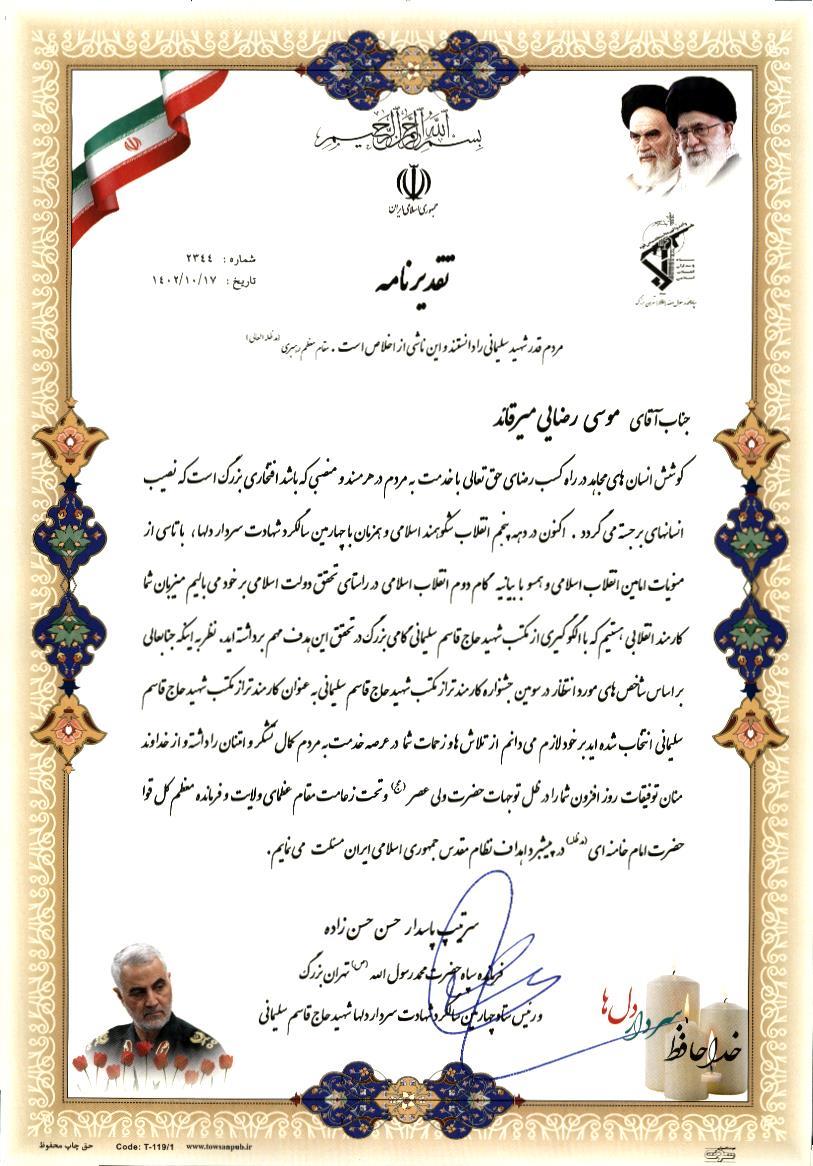 بسم الله الرحمن الرحیم
جمهوری اسلامی ایران
سپاه پاسداران انقلاب اسلامی
شماره : ۲۳۴۴
تاریخ : ۱۴۰۲/۱۰/۱۷
تقدیرنامه
مردم قدر شهید سلیمانی را دانستند و این ناشی از اخلاص است . مقام معظم رهبری (مدظله العالی)
جناب آقای موسی رضایی میرقائد
کوشش انسان های مجاهد در راه کسب رضای حق تعالی با خدمت به مردم در هر مسند و منصبی که باشد افتخاری بزرگ است که نصیب
انسانهای برجسته می گردد . اکنون در دهه پنجم انقلاب شکوهمند اسلامی و همزمان با چهارمین سالگرد شهادت سردار دلها، با تاسی از
منویات امامین انقلاب اسلامی و همسو با بیانیه گام دوم انقلاب اسلامی در راستای تحقق دولت اسلامی بر خود می بالیم میزبان شما
کارمند انقلابی هستیم که با الگو گیری از مکتب شهید حاج قاسم سلیمانی گامی بزرگ در تحقق این هدف مهم برداشته اید. نظر به اینکه جنابعالی
بر اساس شاخص های مورد انتظار در سومین جشنواره کارمند تراز مکتب شهید حاج قاسم سلیمانی به عنوان کارمند تراز مکتب شهید حاج قاسم
سلیمانی انتخاب شده اید بر خود لازم می دانم از تلاش ها و زحمات شما در عرصه خدمت به مردم کمال تشکر و امتنان را داشته و از خداوند
منان توفیقات روز افزون شما را در ظل توجهات حضرت ولی عصر (عج) و تحت زعامت مقام عظمای ولایت و فرمانده معظم کل قوا
حضرت امام خامنه ای (مدظله) در پیشبرد اهداف نظام مقدس جمهوری اسلامی ایران مسئلت می نمایم.
سرتیپ پاسدار حسن حسن زاده
فرمانده سپاه حضرت محمد رسول الله (ص) تهران بزرگ
و رئیس ستاد چهارمین سالگرد شهادت سردار دلها شهید حاج قاسم سلیمانی
خداحافظ سردار دل ها
حق چاپ محفوظ Code: T-119/1 www.towsanpub.ir